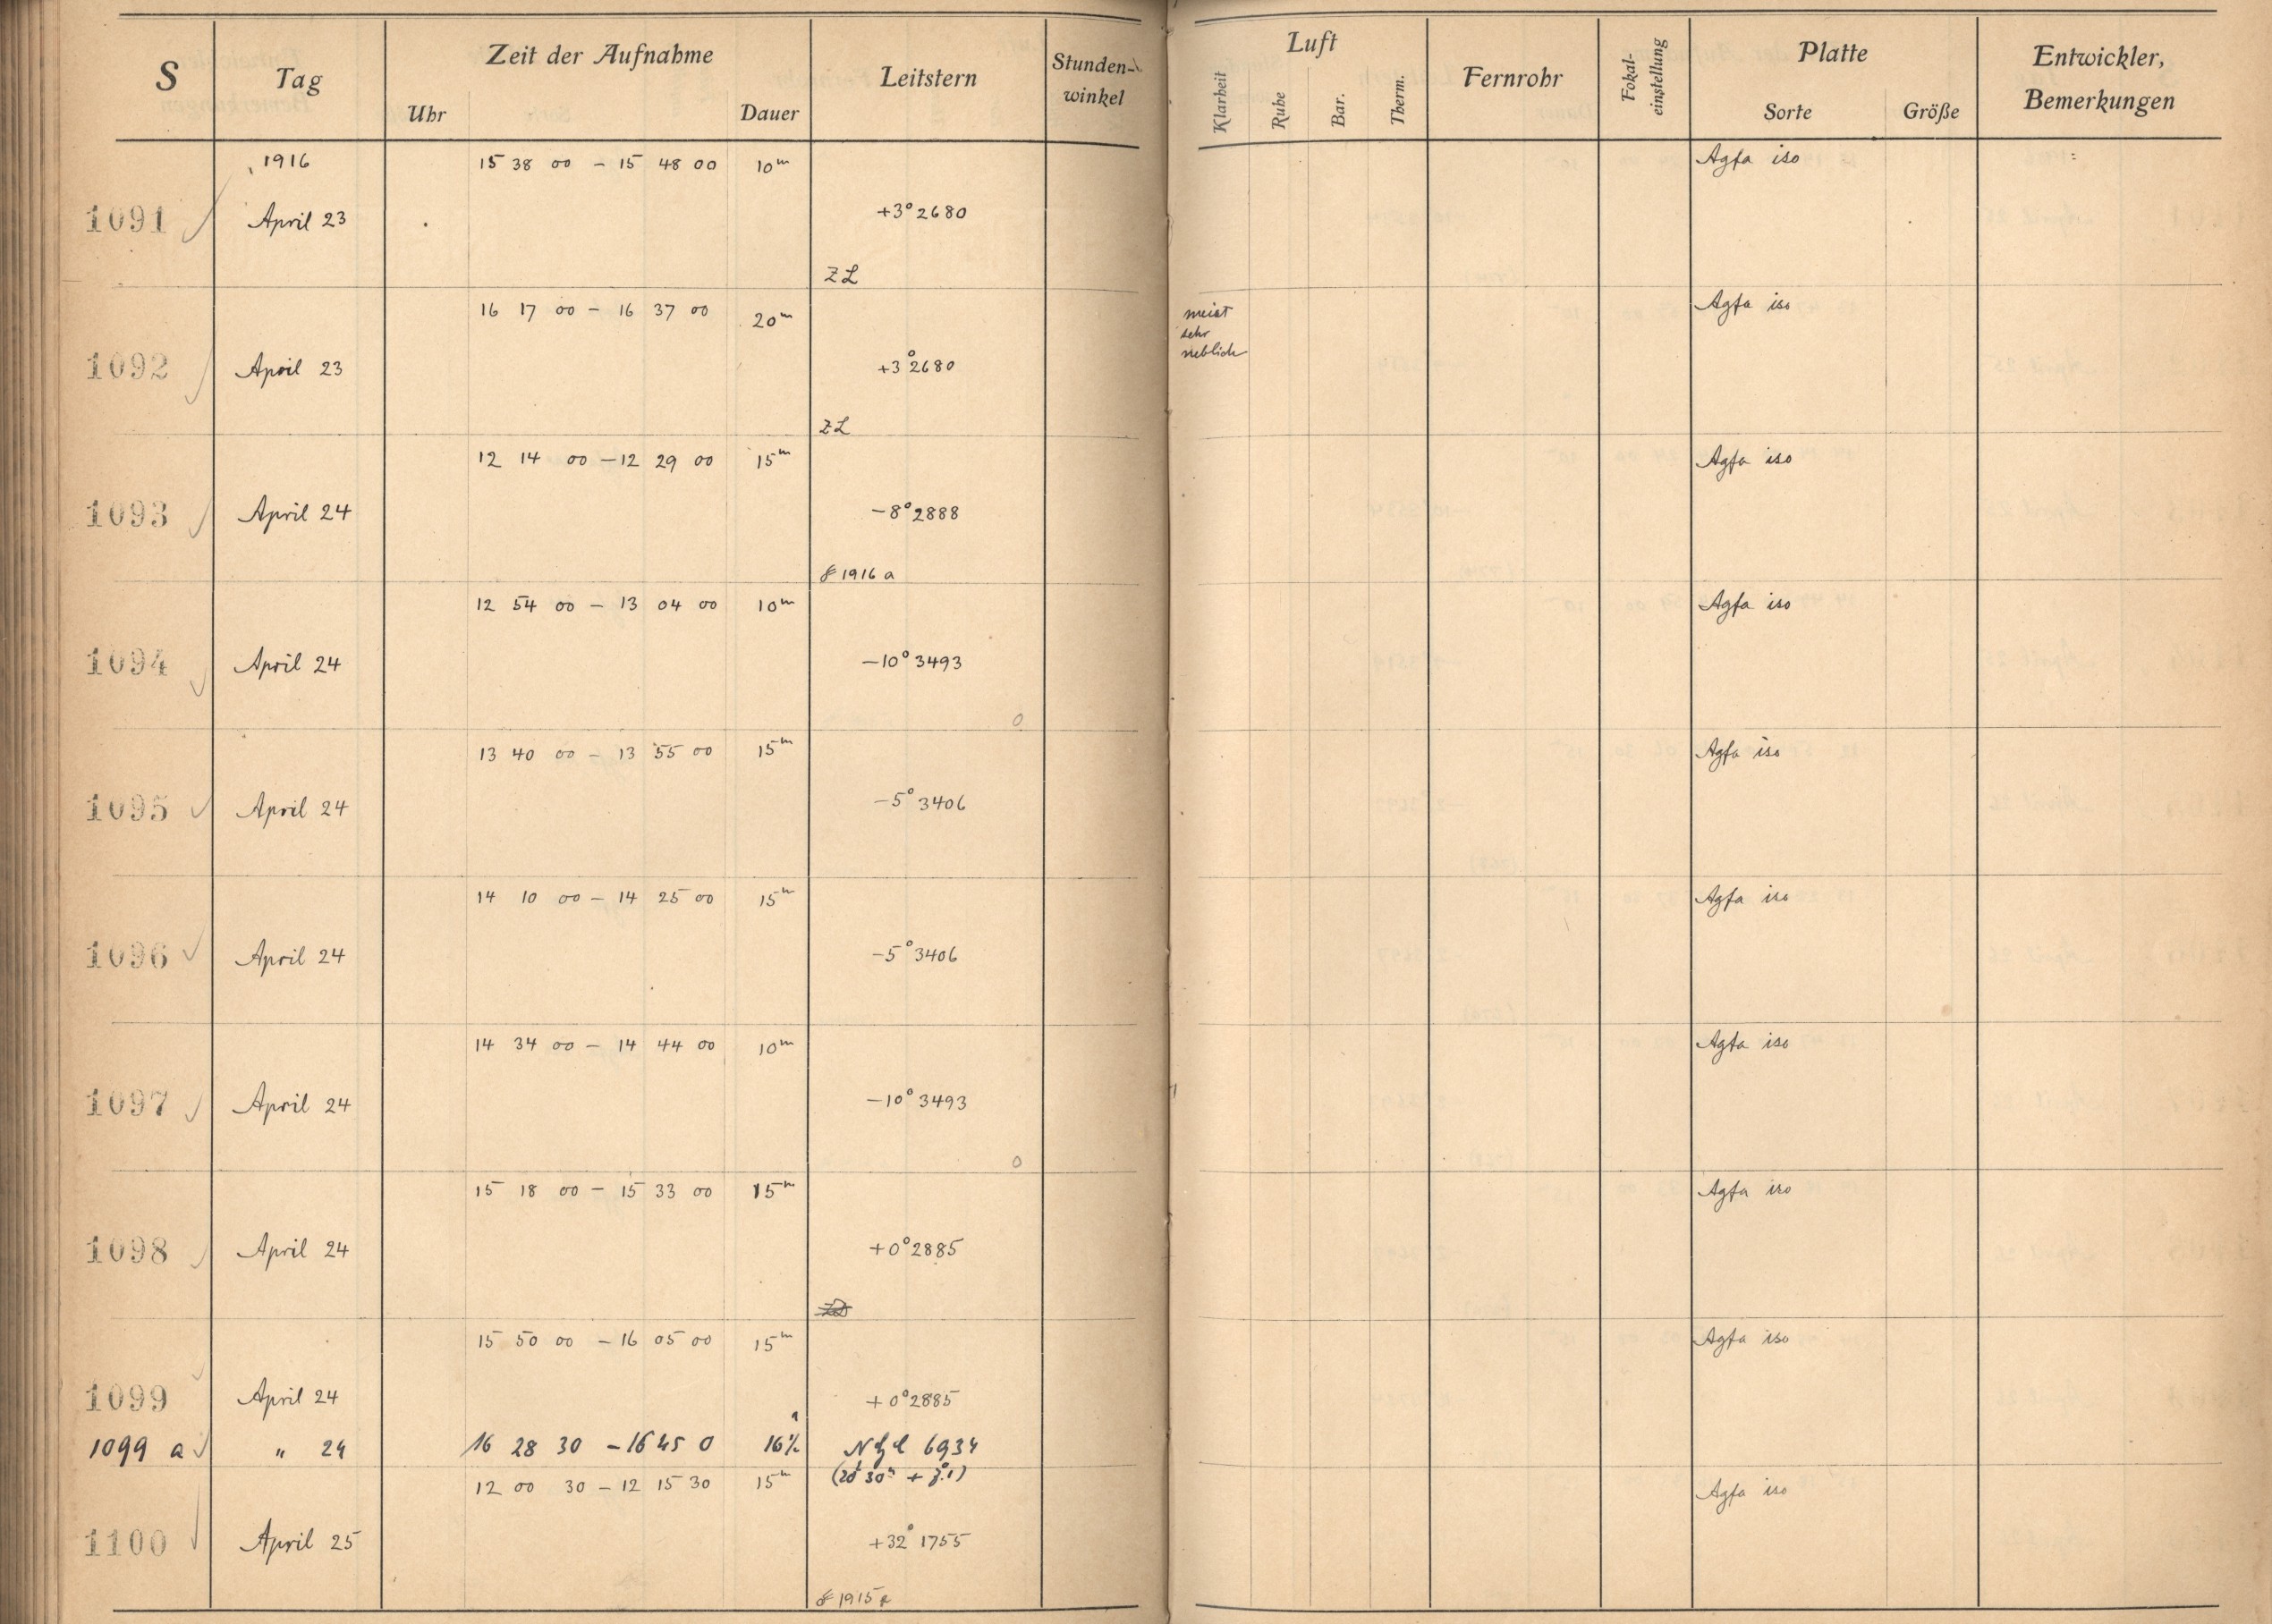 S Tag Zeit der Aufnahme Leitstern Stunden-winkel Luft Fernrohr Fokal-einstellung Platte Entwickler, Bemerkungen
Uhr Dauer Klarheit Ruhe Bar. Therm. Sorte Größe
1916 15 38 00 – 15 48 00 10m Agfa iso
1091 April 23 +3° 2680
ZL
16 17 00 – 16 37 00 20m meist Agfa iso
sehr
neblich
1092 April 23 +3° 2680
ZL
12 14 00 – 12 29 00 15m Agfa iso
1093 April 24 –8° 2888
1916 a
12 54 00 – 13 04 00 10m Agfa iso
1094 April 24 –10° 3493
0
13 40 00 – 13 55 00 15m Agfa iso
1095 April 24 –5° 3406
14 10 00 – 14 25 00 15m Agfa iso
1096 April 24 –5° 3406
14 34 00 – 14 44 00 10m Agfa iso
1097 April 24 –10° 3493
0
15 18 00 – 15 33 00 15m Agfa iso
1098 April 24 +0° 2885
15 50 00 – 16 05 00 15m Agfa iso
1099 April 24 +0° 2885
1099 a " 24 16 28 30 – 16 45 0 16½ 6934
12 00 30 – 12 15 30 15m Agfa iso
1100 April 25 +32° 1755
1915